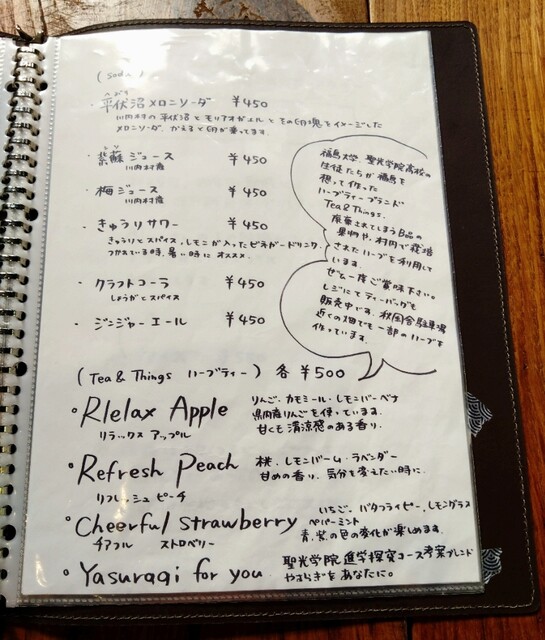 (soda)
へぶす
・平伏沼メロンソーダ ¥450
川内村の平伏沼とモリアオガエルとその卵塊をイメージした
メロンソーダ。かえると卵が乗ってます。
・紫蘇ジュース ¥450
川内村産
・梅ジュース ¥450
川内村産
・きゅうりサワー ¥450
きゅうりとスパイス、レモンが入ったビネガードリンク。
つかれている時、暑い時にオススメ。
・クラフトコーラ ¥450
しょうがとスパイス
・ジンジャーエール ¥450
福島大学、聖光学院高校の
生徒たちが福島を
想って作った
ハーブティーブランド
Tea&Things.
廃棄されてしまうB品の
果物や、村内で栽培
されたハーブを利用して
います。
ぜひ一度ご賞味下さい。
レジにてティーバッグも
販売中です。秋風舎駐車場
近くの畑でも一部のハーブを
作っています。
(Tea & Things ハーブティー) 各¥500
・Rlelax Apple りんご・カモミール・レモンバーベナ
県内産りんごを使っています。
リラックス アップル 甘くも清涼感のある香り。
・Refresh Peach 桃・レモンバーム・ラベンダー
甘めの香り。気分を変えたい時に。
リフレッシュ ピーチ
・Cheerful strawberry いちご・バタフライピー、レモングラス
ペパーミント
チアフル ストロベリー 青、紫の色の変化が楽しめます。
・Yasuragi for you 聖光学院 進学探究コース考案ブレンド
やすらぎをあなたに。